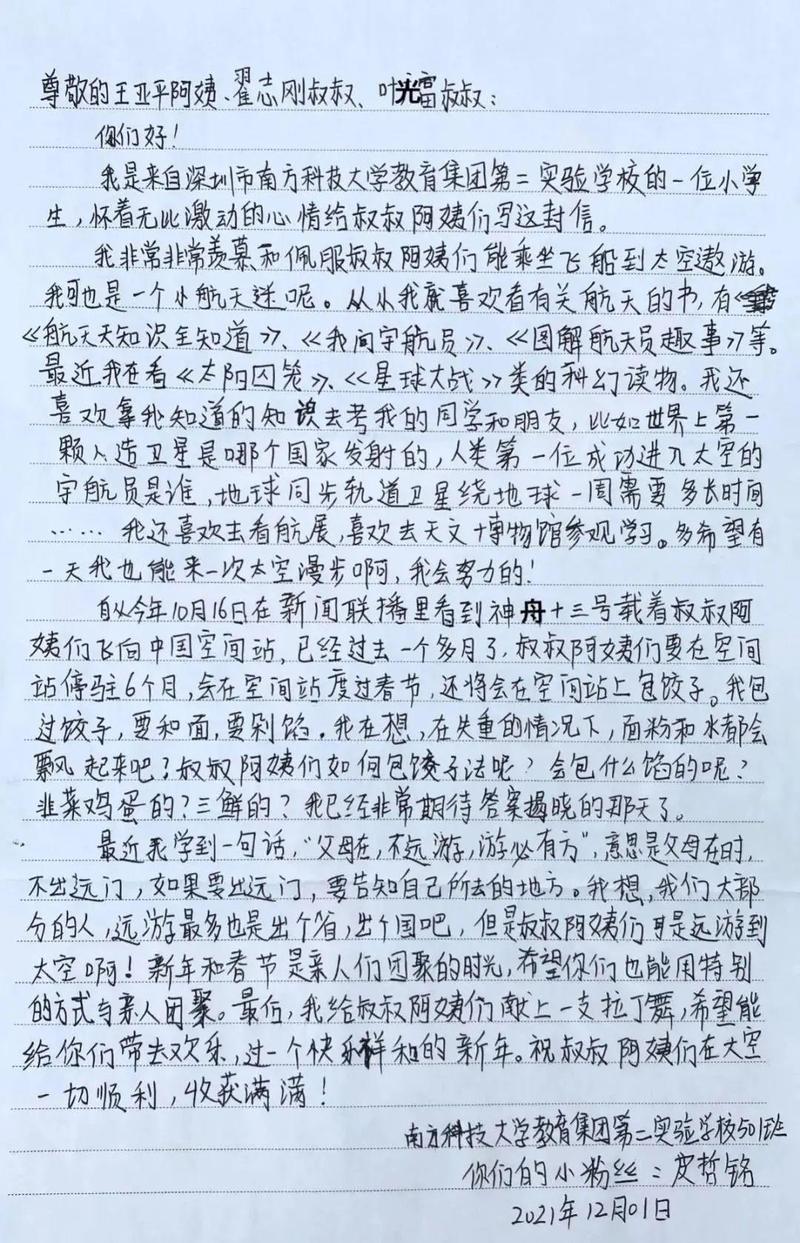 尊敬的王亚平阿姨、翟志刚叔叔、叶光富叔叔:
你们好!
我是来自深圳市南方科技大学教育集团第二实验学校的一位小学
生,怀着无比激动的心情给叔叔阿姨们写这封信。
我非常非常羡慕和佩服叔叔阿姨们能乘坐飞船到太空遨游。
我可也是一个小航天迷呢。从小我就喜欢看有关航天的书,有
《航天天知识全知道》、《我问宇航员》、《图解航天员趣事》等。
最近我在看《太阳囚笼》、《星球大战》类的科幻读物。我还
喜欢拿我知道的知识去考我的同学和朋友,比如世界上第一
颗人造卫星是哪个国家发射的,人类第一位成功进入太空的
宇航员是谁,地球同步轨道卫星绕地球一周需要多长时间
……我还喜欢去看航展,喜欢去天文博物馆参观学习。多希望有
一天我也能来一次太空漫步啊,我会努力的!
自从今年10月16日在新闻联播里看到神舟十三号载着叔叔阿
姨们飞向中国空间站,已经过去一个多月了,叔叔阿姨们要在空间
站停驻6个月,会在空间站度过春节,还将会在空间站上包饺子。我包
过饺子,要和面,要剁馅。我在想,在失重的情况下,面粉和水都会
飘起来吧?叔叔阿姨们如何包饺子法呢?会包什么馅的呢?
韭菜鸡蛋的?三鲜的?我已经非常期待答案揭晓的那天了。
最近我学到一句话,“父母在,不远游,游必有方”,意思是父母在时,
不出远门,如果要出远门,要告知自己所去的地方。我想,我们大部
分的人,远游最多也是出个省,出个国吧,但是叔叔阿姨们可是远游到
太空啊!新年和春节是亲人们团聚的时光,希望你们也能用特别
的方式与亲人团聚。最后,我给叔叔阿姨们献上一支拉丁舞,希望能
给你们带去欢乐,过一个快乐祥和的新年。祝叔叔阿姨们在太空
一切顺利,收获满满!
南方科技大学教育集团第二实验学校501班
你们的小粉丝:皮哲铭
2021年12月01日